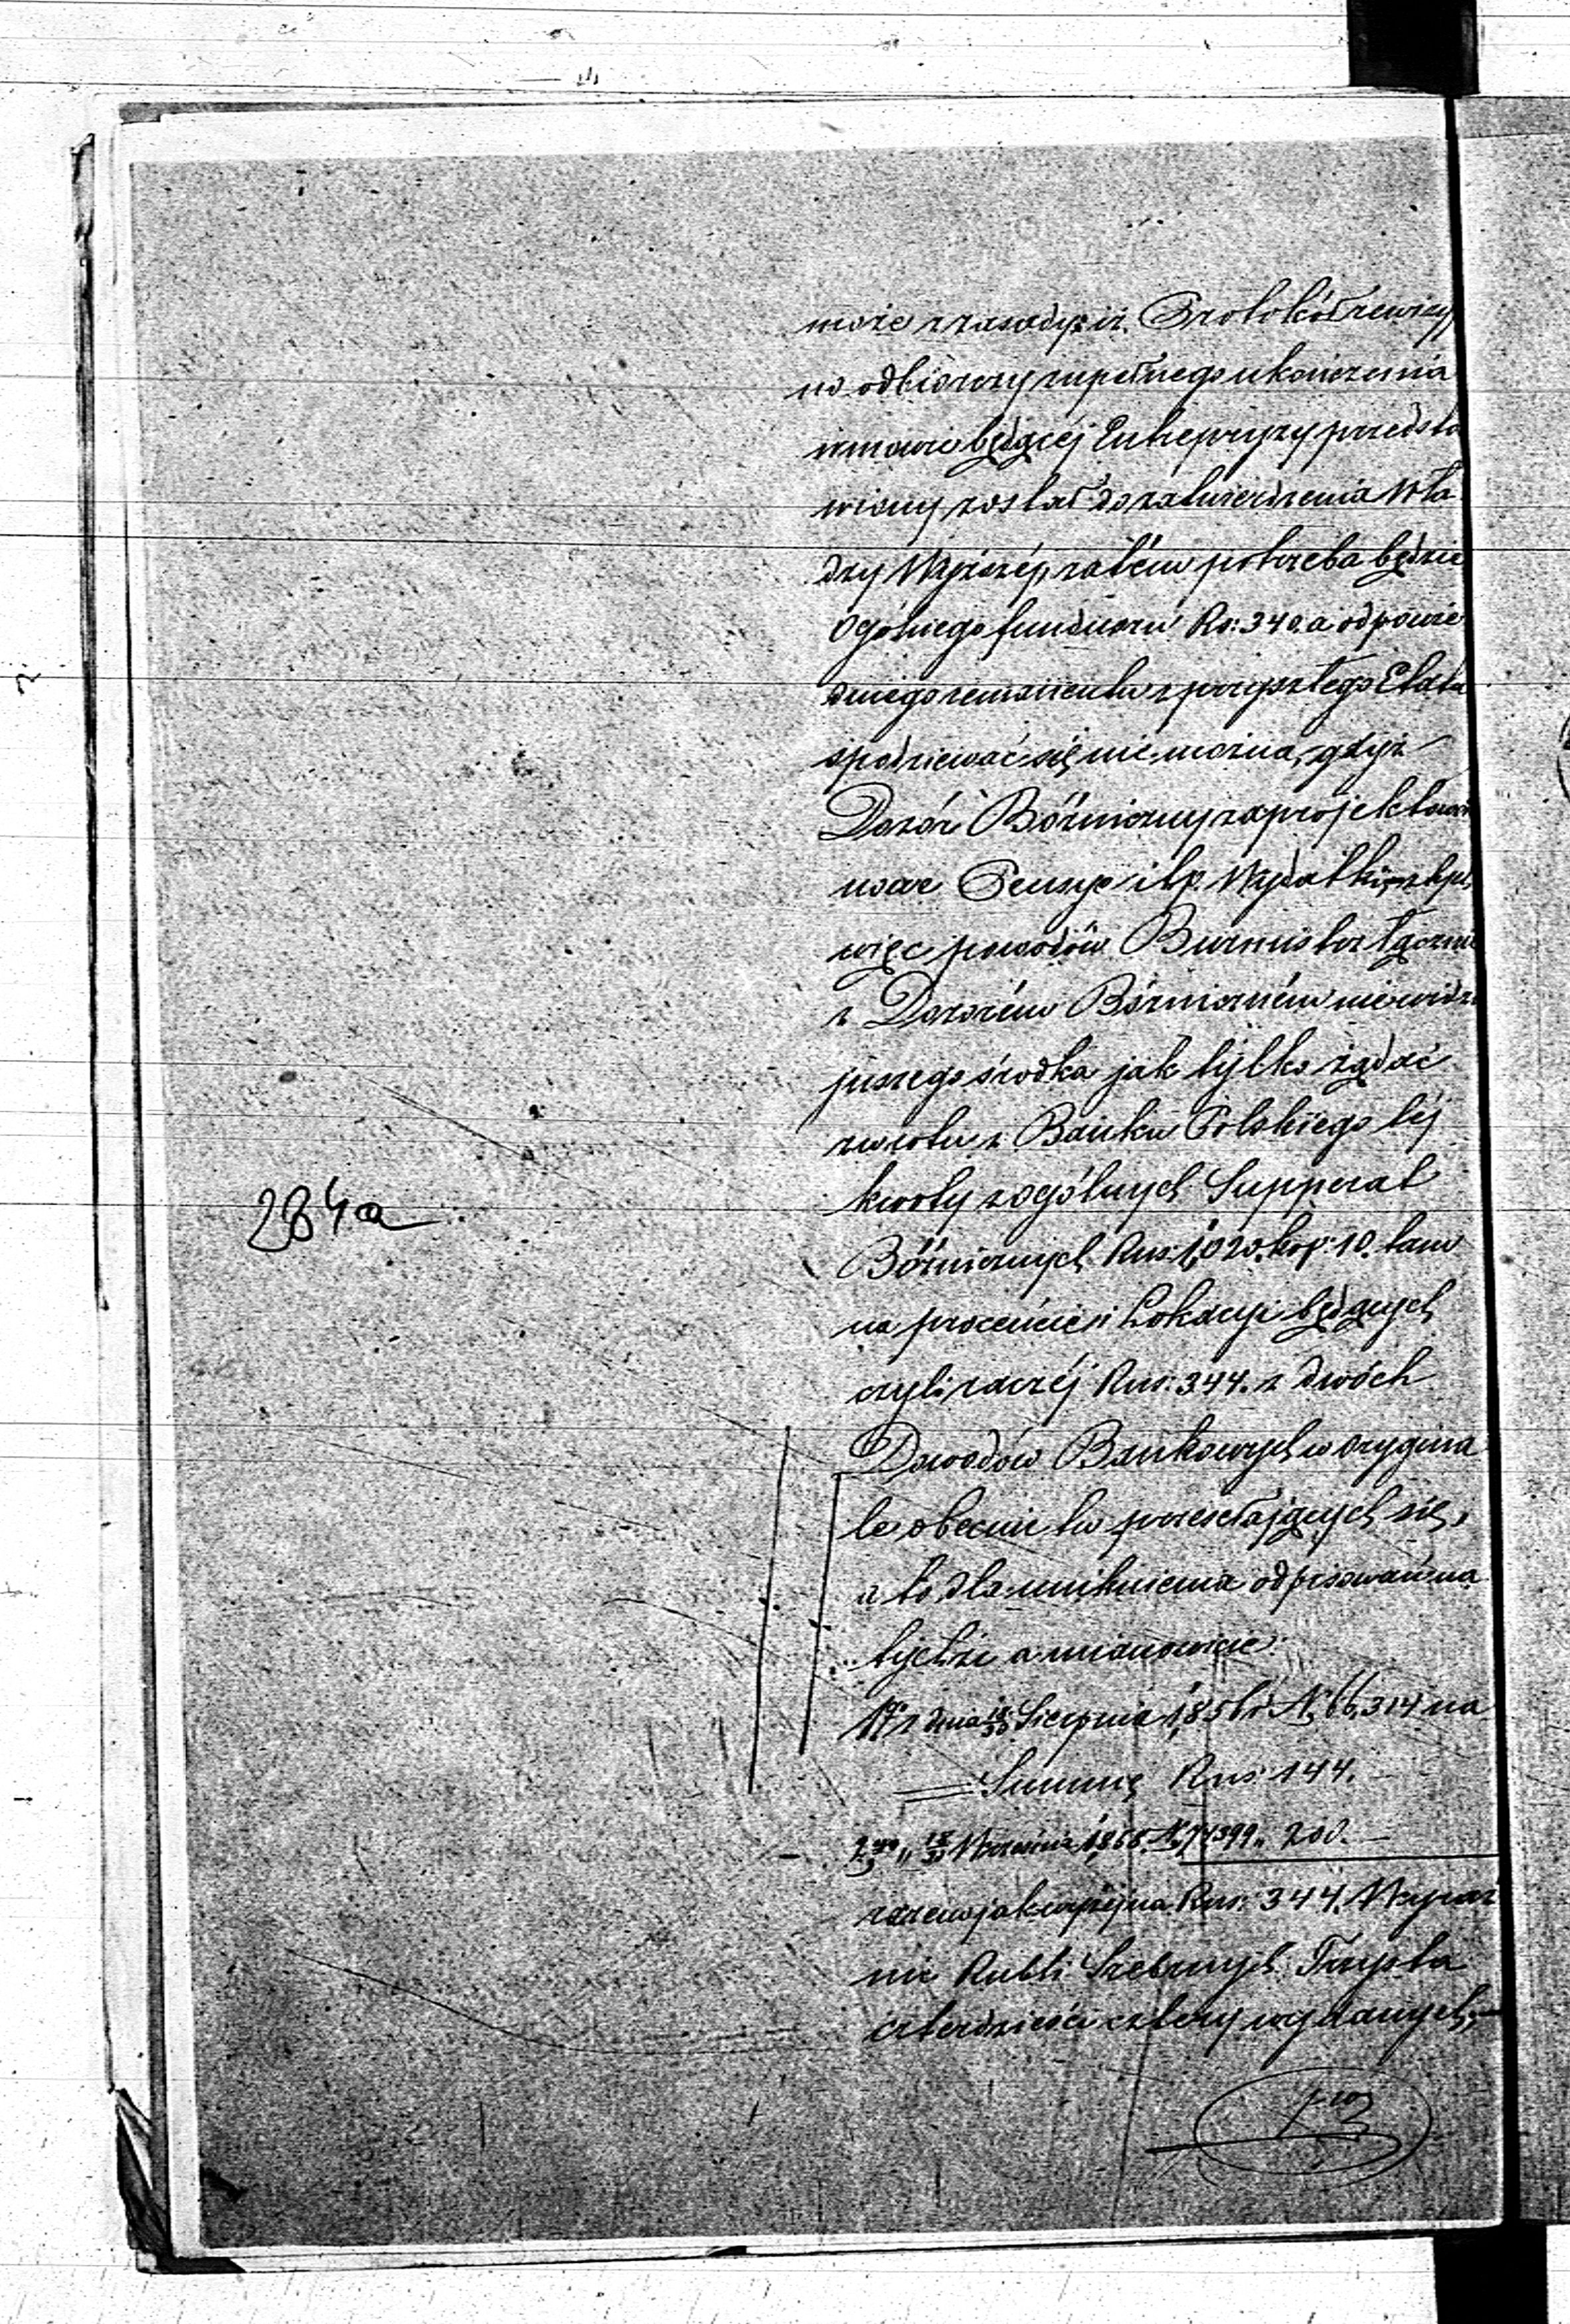 może z zasady iż Protokół rewizyj
no odbiorczy zupełnego ukończenia
w mowie będącéj Entrepryzy przedsta
wiony został do zatwierdzenia Wła
dzy Wyższéj, zatém potrzeba będzie
Ogólnego funduszu Rs: 340. a odpowie
dniego remanentu z przyszłego Etatu
spodziewać się nie można, gdyż
Dozór Bóźniczny zaprojektował
Pensye i tp. Wydatki z tych
więc powodów Burmistrz łącznie
z Dozorém Bóźniczném nie widzi
inszego środka jak tylko żądać
zwrotu z Banku Polskiego téj
kwoty z ogólnych Supperat
Bóźnicznych Rus: 1,020. kop: 10. tam
na procencie i Lokacyi będących
czyli raczéj Rus: 344. z dwóch
Dowodów Bankowych w orygina
le obecnie tu przesełających się,
a to dla uniknienia odpisowań na
tychże a mianowicie:
1º z dnia 18/30 Sierpnia 1856 r Nº 66,314 na
Summę Rus: 144.
2go " 18/30 Września 1868. Nº 74399 " 200.
razem jak wyżéj na Rus: 344. Wyraź
nie Rubli Srebrnych Trzysta
czterdzieści cztery wydanych,
284a